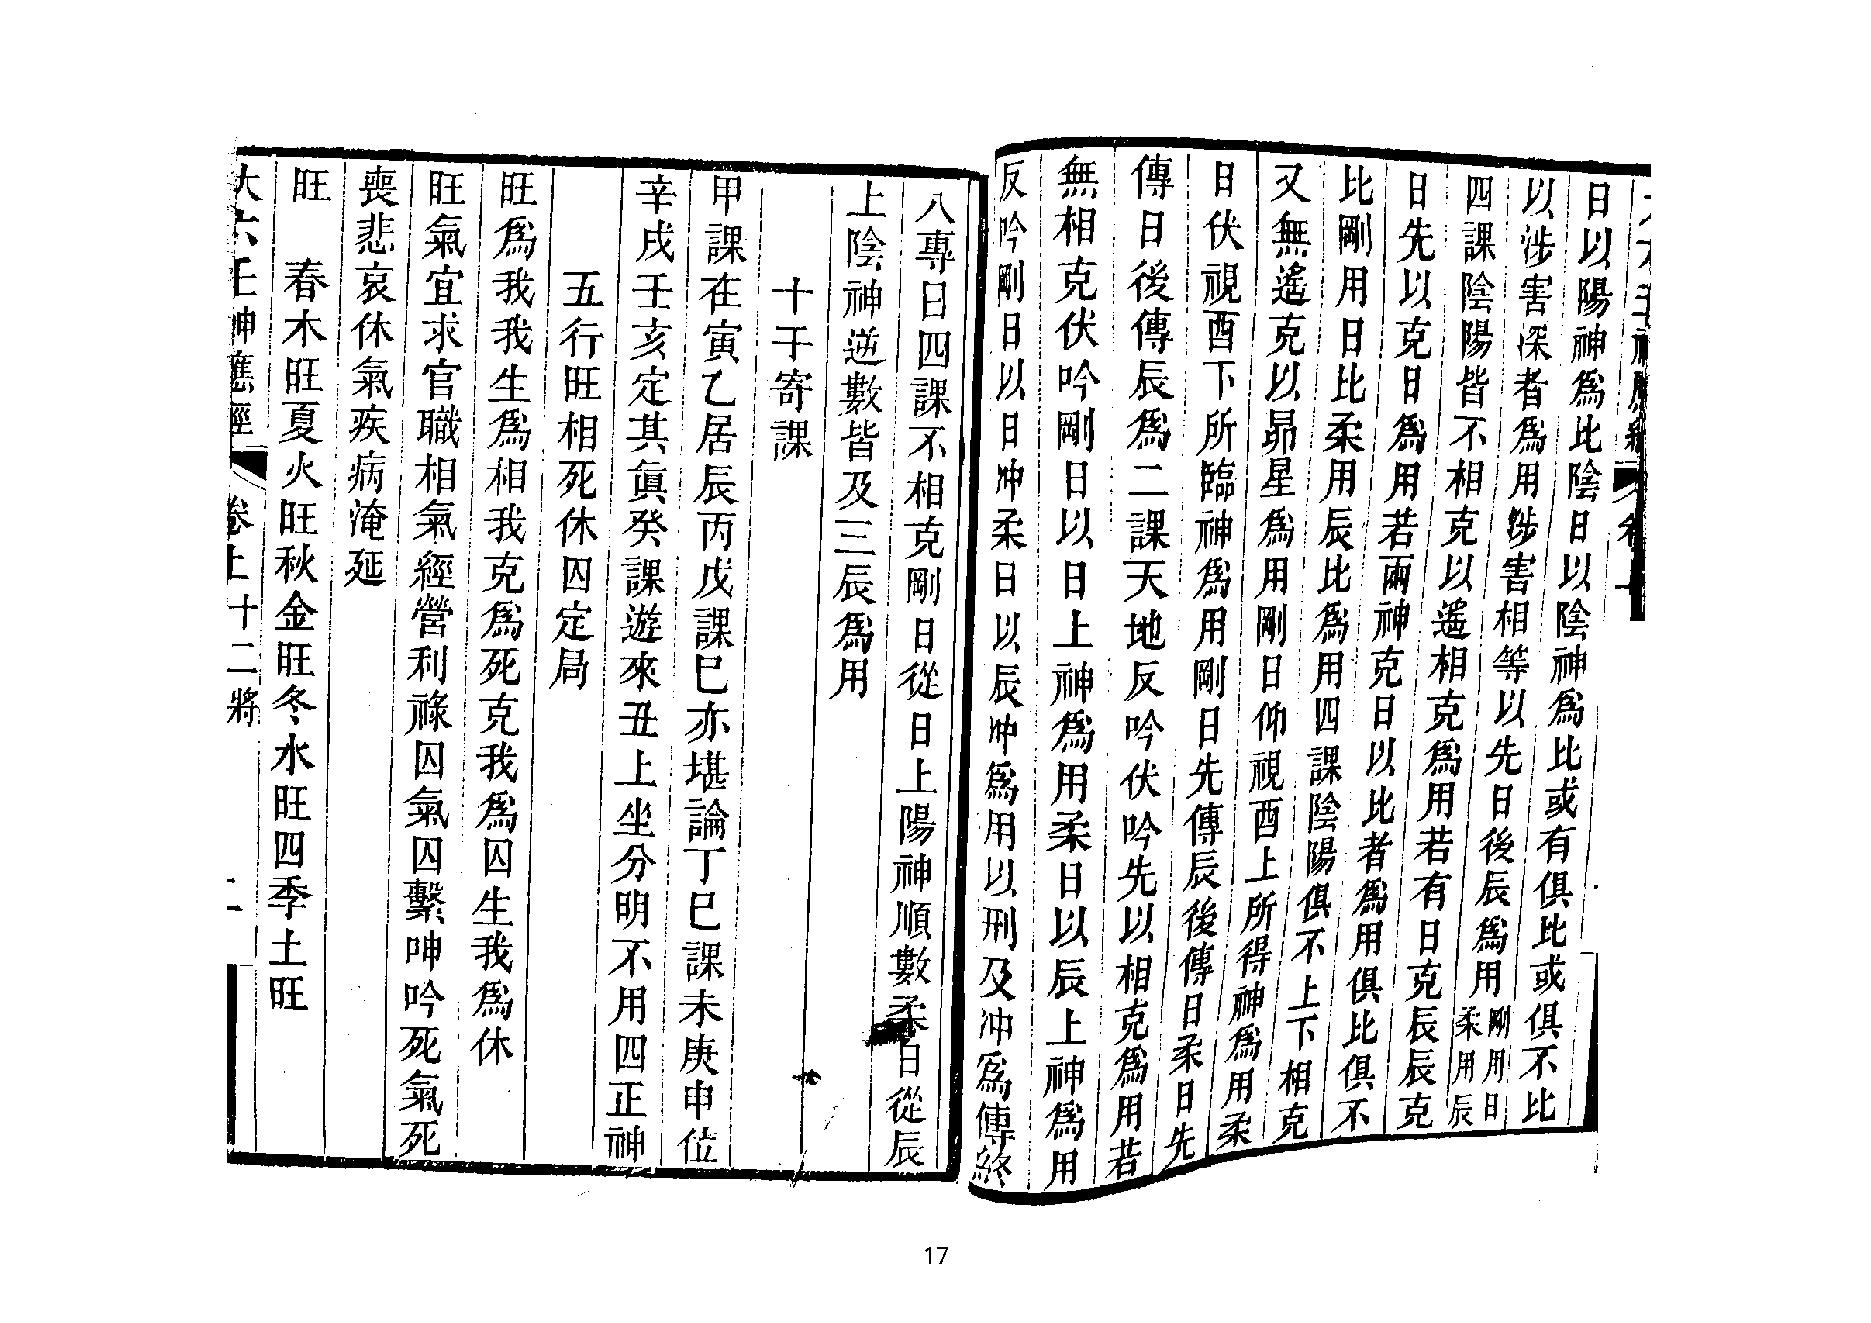 日以陽神爲比陰日以陰神爲比或有俱比或俱不比
以涉害深者爲用涉害相等以先日後辰爲用剛用日柔用辰
四課陰陽皆不相克以遙相克爲用若有日克辰辰克
日先以克日爲用若兩神克日以比者爲用俱比俱不
比剛用日比柔用辰比爲用四課陰陽俱不上下相克
又無遙克以昴星爲用剛日仰視酉上所得神爲用柔
日伏視酉下所臨神爲用剛日先傳辰後傳日柔日先
傳日後傳辰爲二課天地反吟伏吟先以相克爲用若
無相克伏吟剛日以日上神爲用柔日以辰上神爲用
反吟剛日以日冲柔日以辰冲爲用以刑及冲爲傳終
八專日四課不相克剛日從日上陽神順數柔日從辰
上陰神逆數皆及三辰爲用
十干寄課
甲課在寅乙居辰丙戊課巳亦堪論丁巳課未庚申位
辛戌壬亥定其眞癸課遊來丑上坐分明不用四正神
五行旺相死休囚定局
旺爲我我生爲相我克爲死克我爲囚生我爲休
旺氣宜求官職相氣經營利祿囚氣囚繫呻吟死氣死
喪悲哀休氣疾病淹延
旺 春木旺夏火旺秋金旺冬水旺四季土旺
大六壬神應經 卷上十二將 二
17